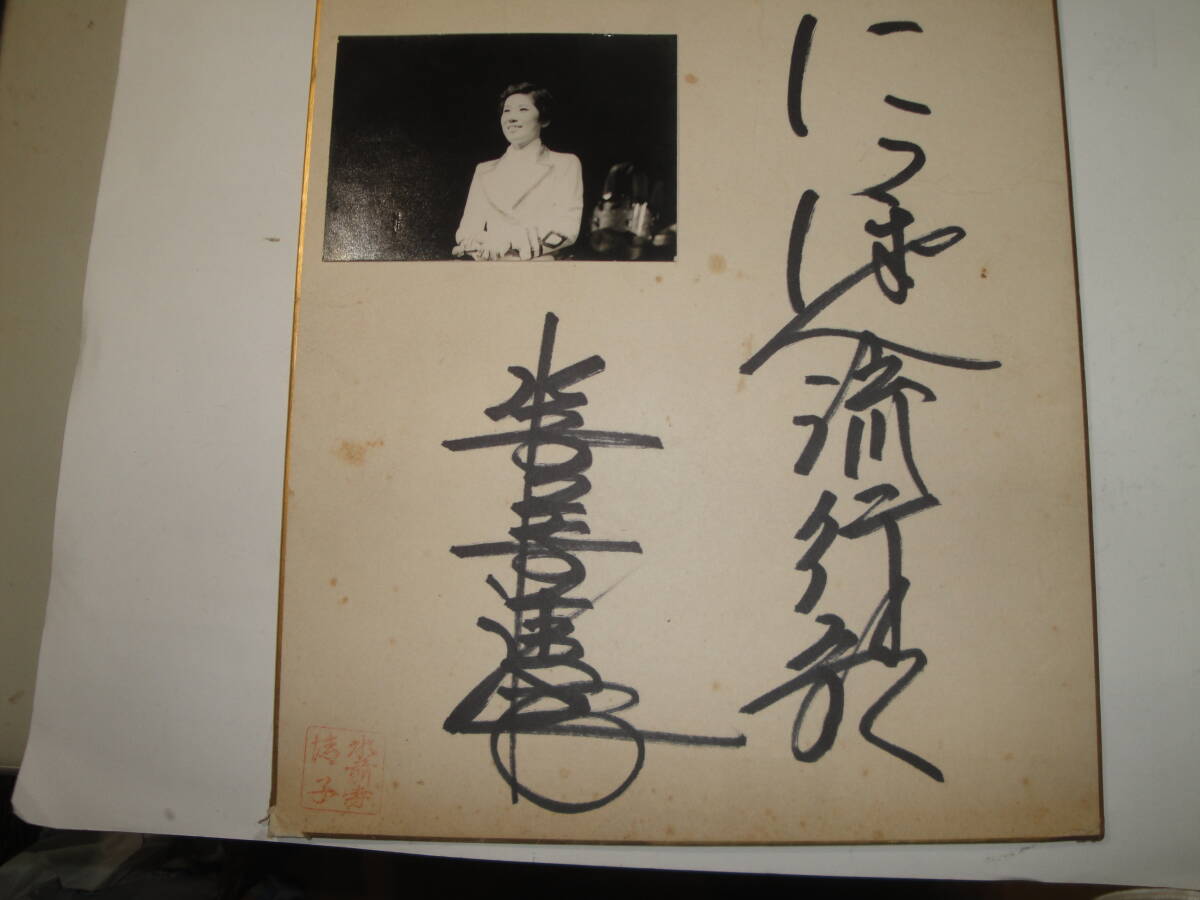 にっぽん流行歌
水前寺清子
水前寺
清子